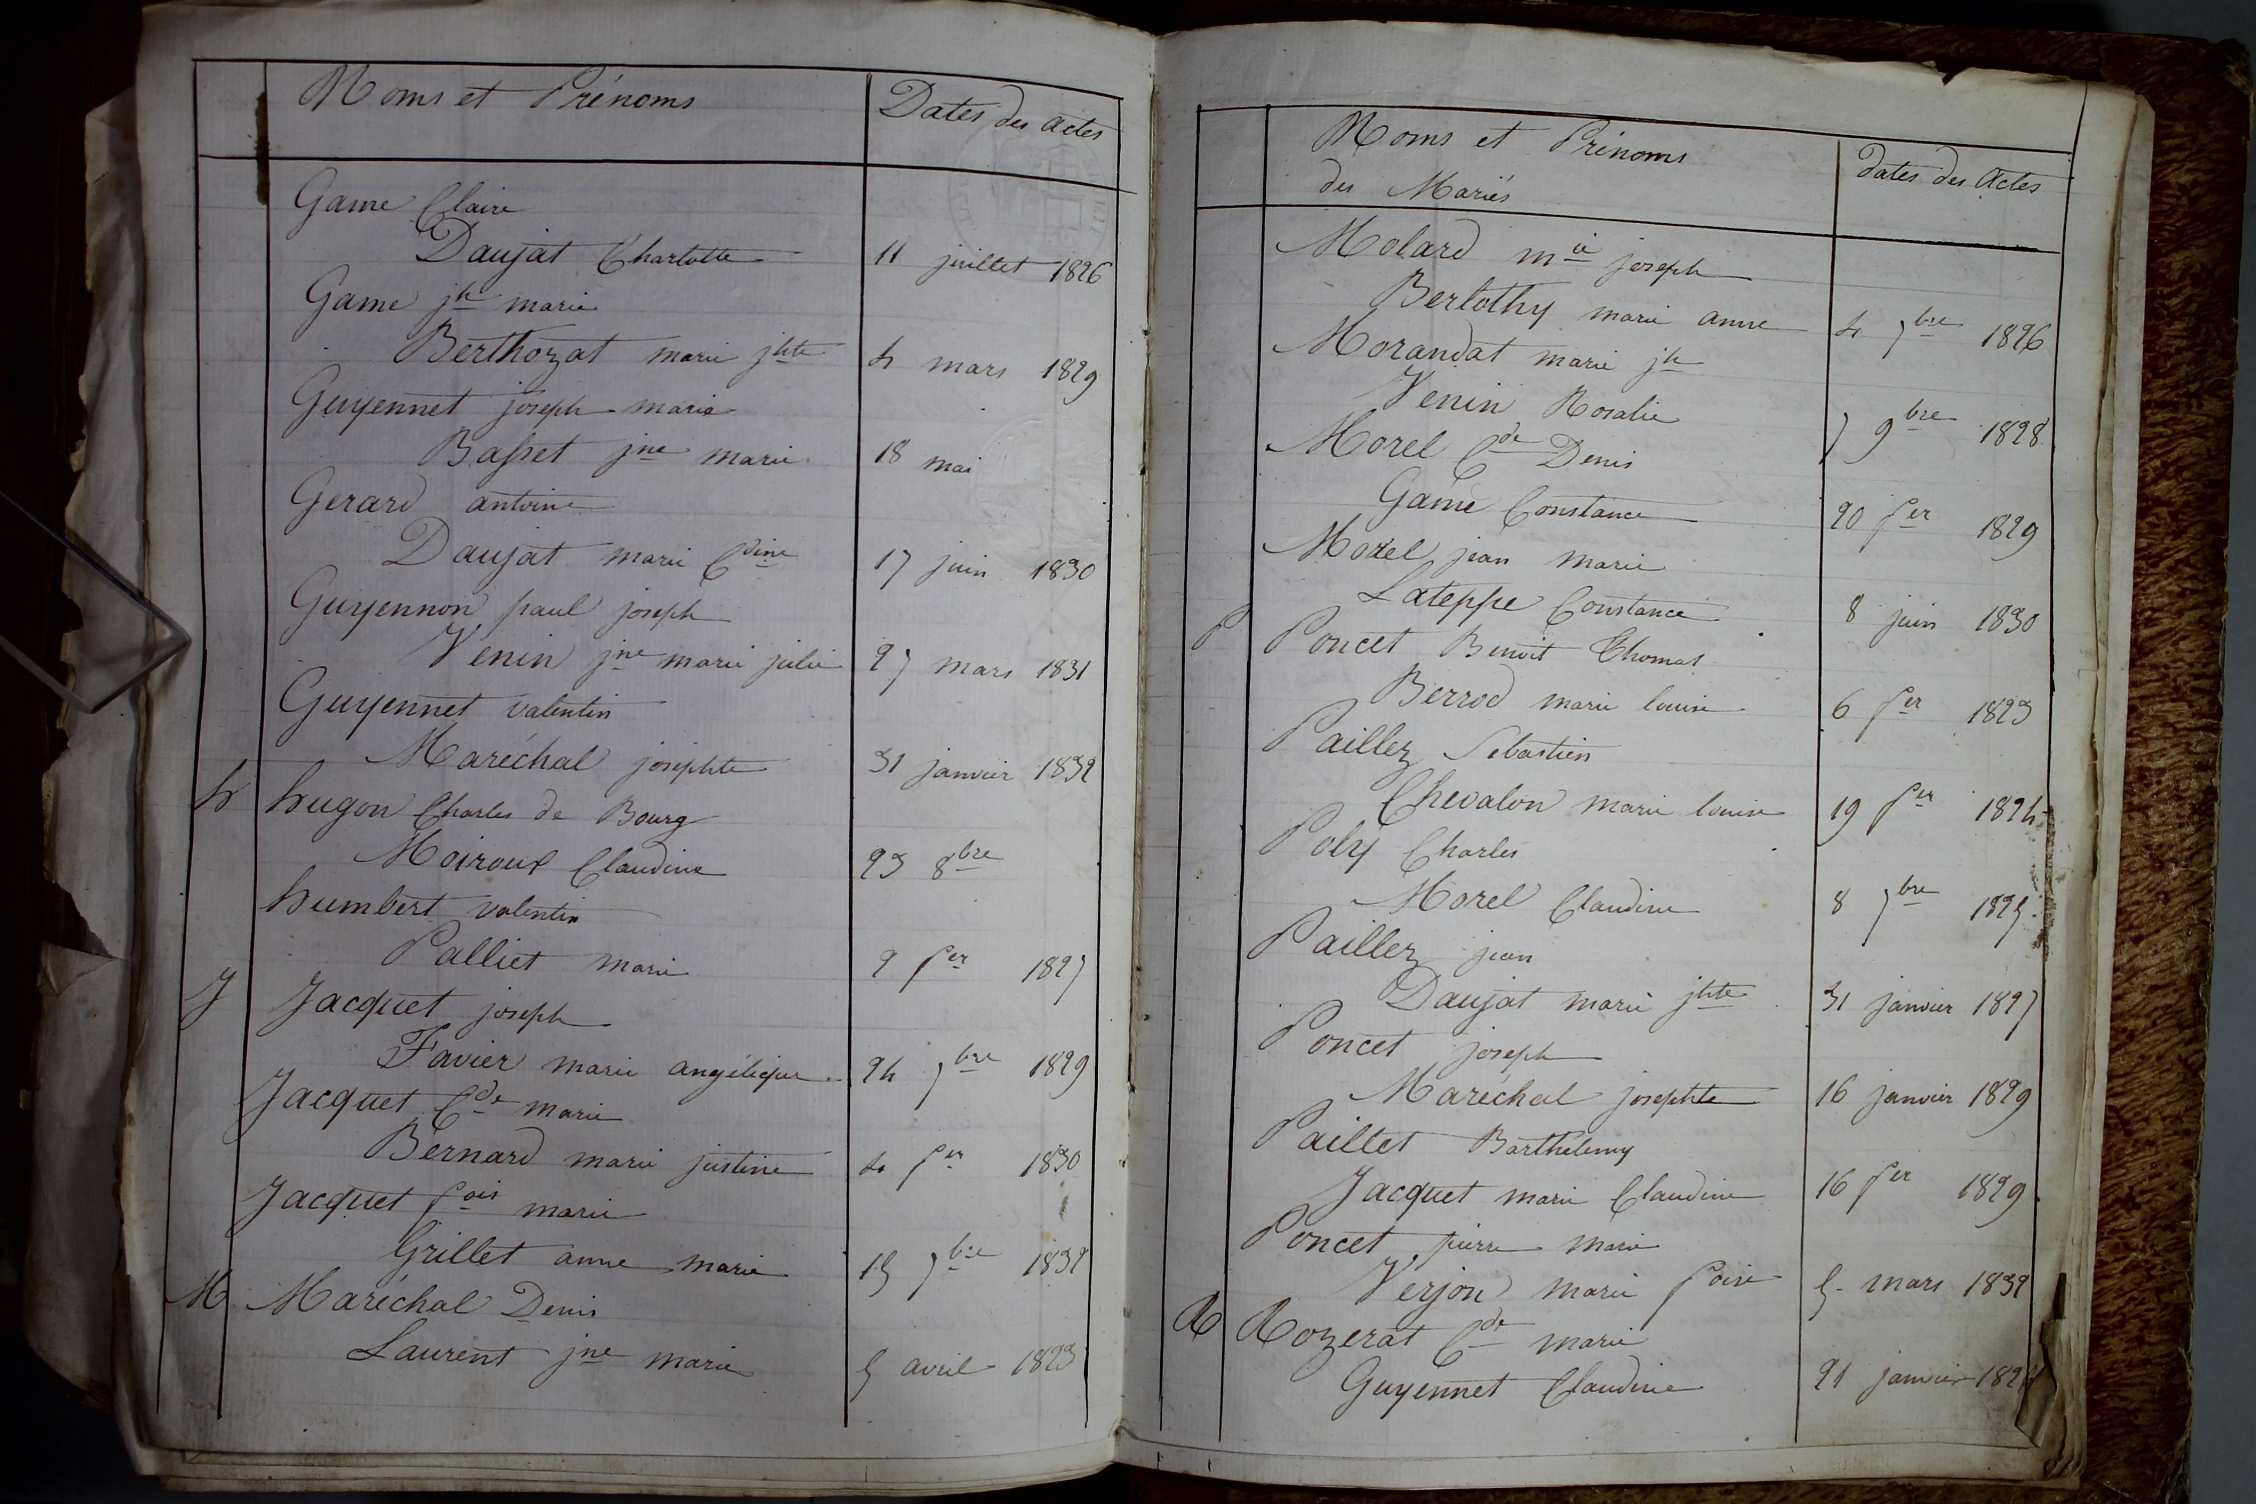 Noms et Prénoms
Dates des actes
Game Claire
Daujat Charlotte 11 juillet 1826
Game jh marie
Berthozat marie jhte 4 mars 1829
Guyennet joseph marie
Basset jne marie 18 mai
Gerard antoine
Daujat marie Cdine 17 juin 1830
Guyennon paul joseph
Venin jne marie julie 27 mars 1831
Guyennet valentin
Maréchal josephte 31 janvier 1832
h hugon Charles de Bourg
Moiroux Claudine 23 8bre
humbert valentin
Palliet marie 2 fer 1827
J Jacquet joseph
Favier marie angélique 24 7bre 1829
Jacquet Cde marie
Bernard marie justine 4 fer 1830
Jacquet fois marie
Grillet anne marie 15 7bre 1832
M Maréchal Denis
Laurent jne marie 5 avril 1823
Noms et Prénoms
des Mariés
dates des Actes
Molard mie joseph
Berlothy marie anne 4 7bre 1826
Morandat marie jh
Venin Rosalie 7 9bre 1828
Morel Cde Denis
Game Constance 20 fer 1829
Morel jean marie
Lateppe Constance 8 juin 1830
P Poncet Benoit Thomas
Berrod marie louise 6 fer 1823
Paillez Sebastien
Chevalon marie louise 19 fer 1824
Poly Charles
Morel Claudine 8 7bre 1825
Paillez jean
Daujat marie jhte 31 janvier 1827
Poncet joseph
Maréchal josephte 16 janvier 1829
Paillet Barthélemy
Jacquet marie Claudine 16 fer 1829
Poncet pierre marie
Verjon marie foise 5 mars 1832
R Rozerat Cde marie
Guyennet Claudine 21 janvier